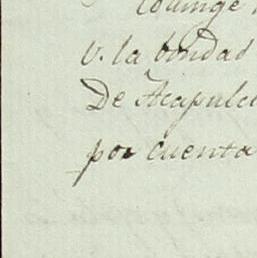 V. la bondad
De Acapulc
por cuenta